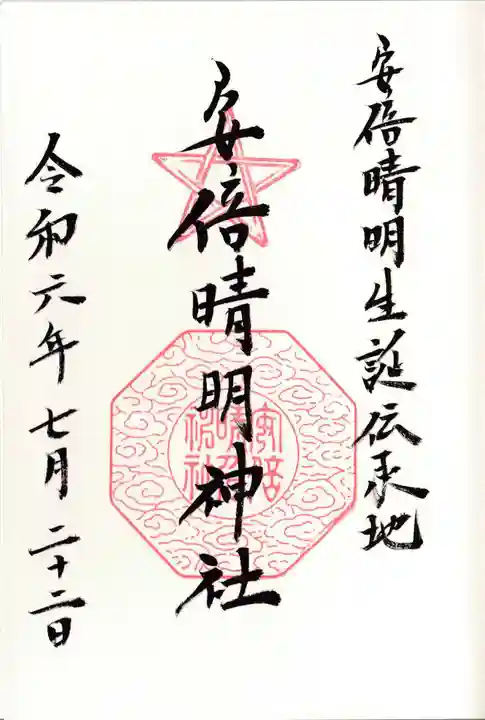 安倍晴明生誕伝承地
安倍晴明神社
安倍晴明神社
令和六年七月二十二日